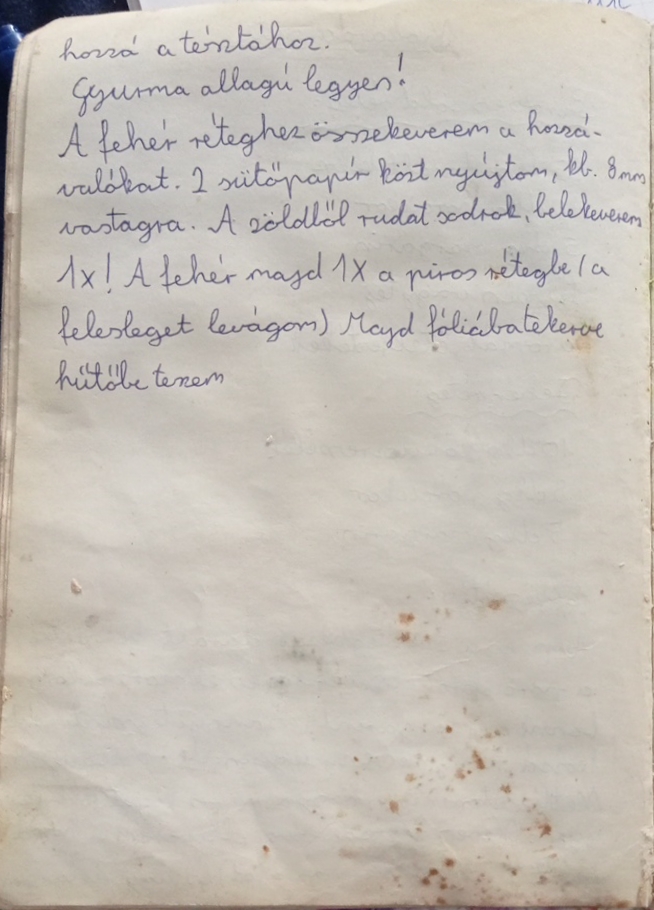 hozzá a tésztához.
Gyurma allagú legyen!
A fehér réteghez összekeverem a hozzá-
valókat. 2 sütőpapír közt nyújtom, kb. 8 mm
vastagra. A zöldből rudat sodrok, belekeverem
1x! A fehér majd 1X a piros rétegbe (a
felesleget levágom) Majd fóliába tekerve
hűtőbe teszem